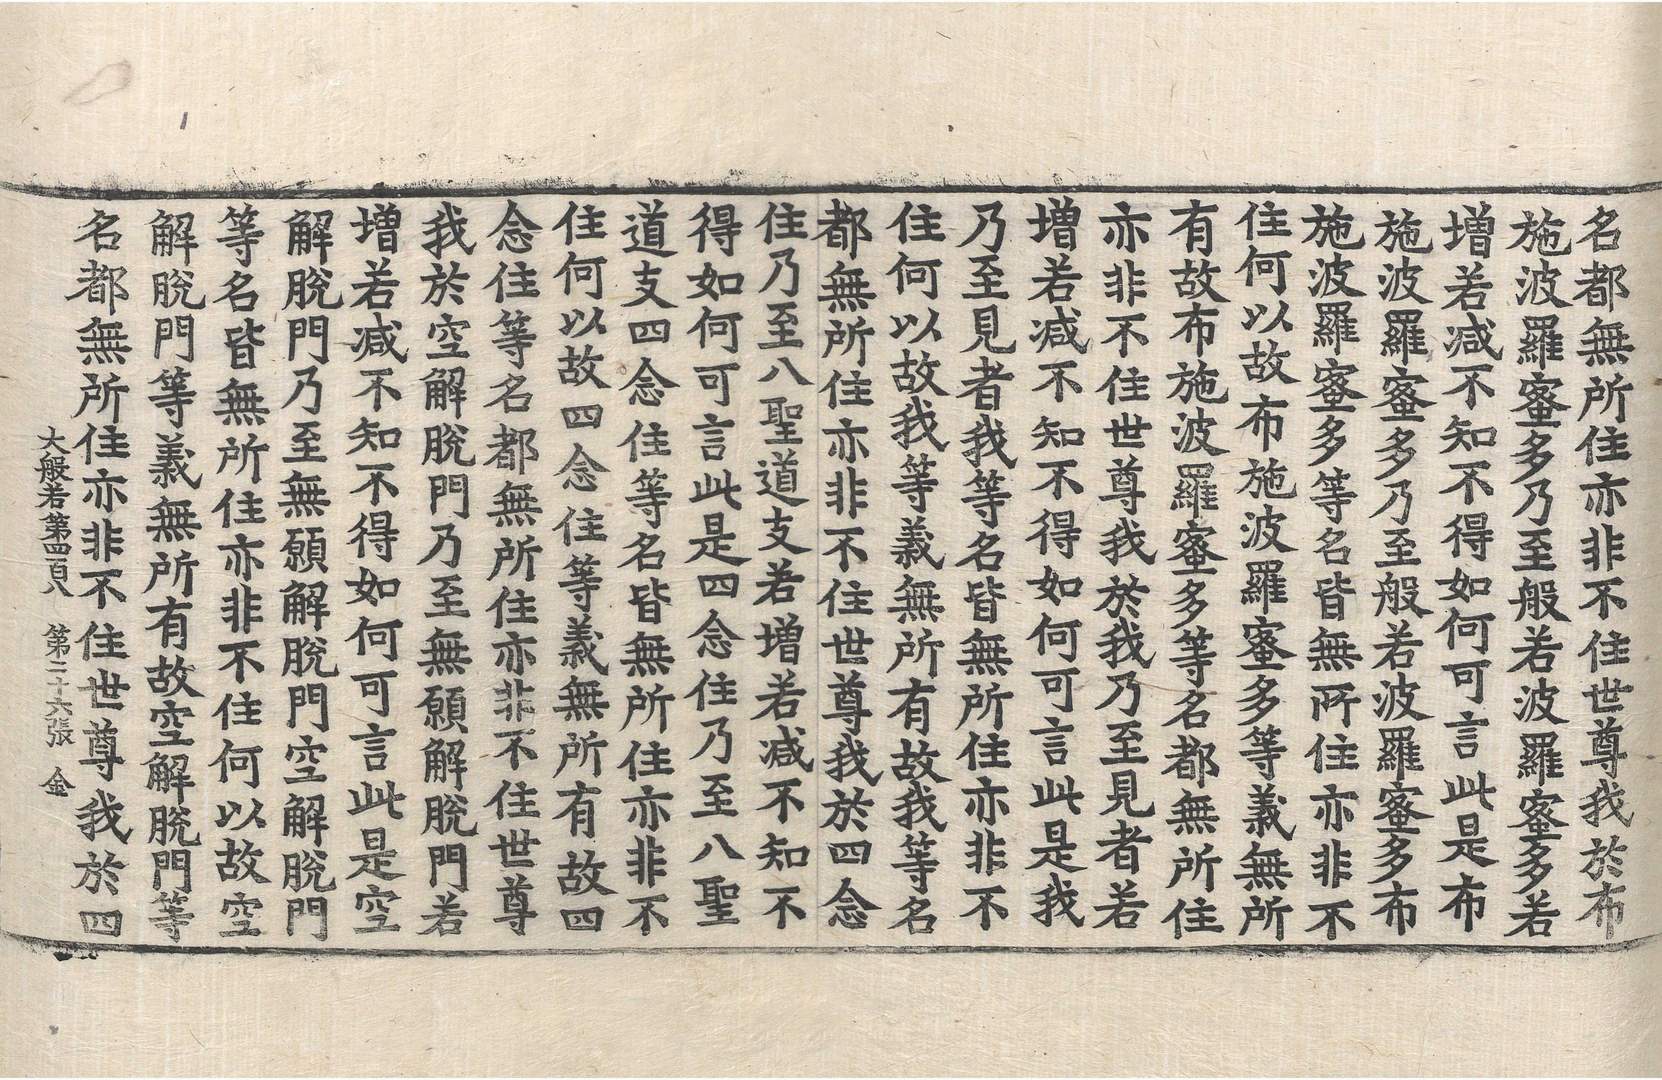 名都無所住亦非不住世尊我於布
施波羅蜜多乃至般若波羅蜜多若
增若减不知不得如何可言此是布
施波羅蜜多乃至般若波羅蜜多布
施波羅蜜多等名皆無所住亦非不
住何以故布施波羅蜜多等義無所
有故布施波羅蜜多等名都無所住
亦非不住世尊我於我乃至見者若
增若减不知不得如何可言此是我
乃至見者我等名皆無所住亦非不
住何以故我等義無所有故我等名
都無所住亦非不住世尊我於四念
住乃至八聖道支若增若减不知不
得如何可言此是四念住乃至八聖
道支四念住等名皆無所住亦非不
住何以故四念住等義無所有故四
念住等名都無所住亦非不住世尊
我於空解脫門乃至無願解脫門若
增若减不知不得如何可言此是空
解脫門乃至無願解脫門空解脫門
等名皆無所住亦非不住何以故空
解脫門等義無所有故空解脫門等
名都無所住亦非不住世尊我於四
大般若第四百八 第二十六張 金